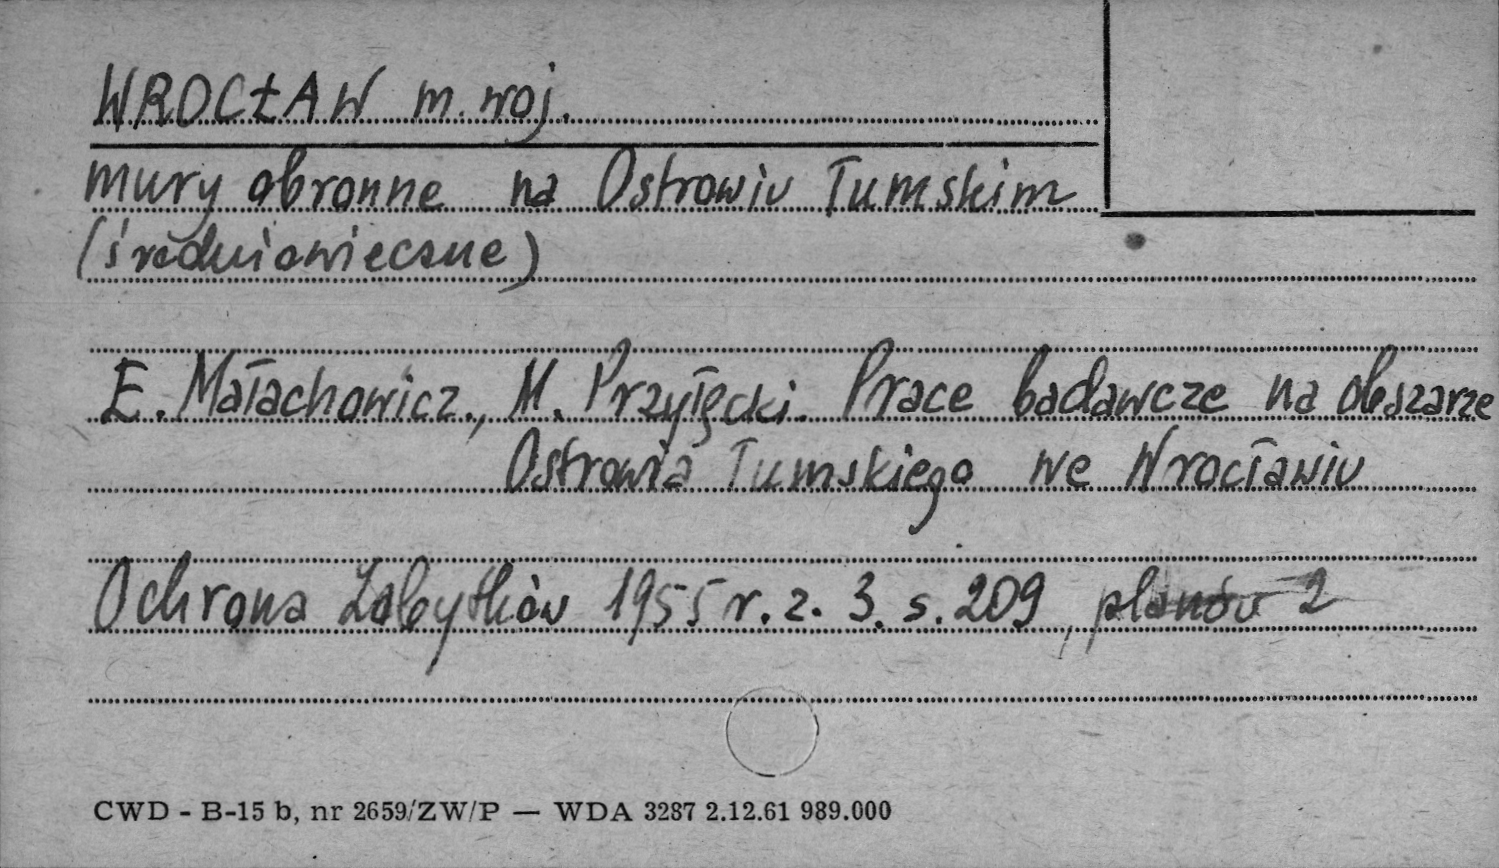 WROCŁAW m. woj.
mury obronne na Ostrowiu Tumskim
(średniowieczne)
E. Małachowicz., M. Przyłęcki. Prace badawcze na obszarze
Ostrowia Tumskiego we Wrocławiu
Ochrona Zabytków 1955 r. z. 3. s. 209, planów 2
CWD - B-15 b, nr 2659/ZW/P — WDA 3287 2.12.61 989.000